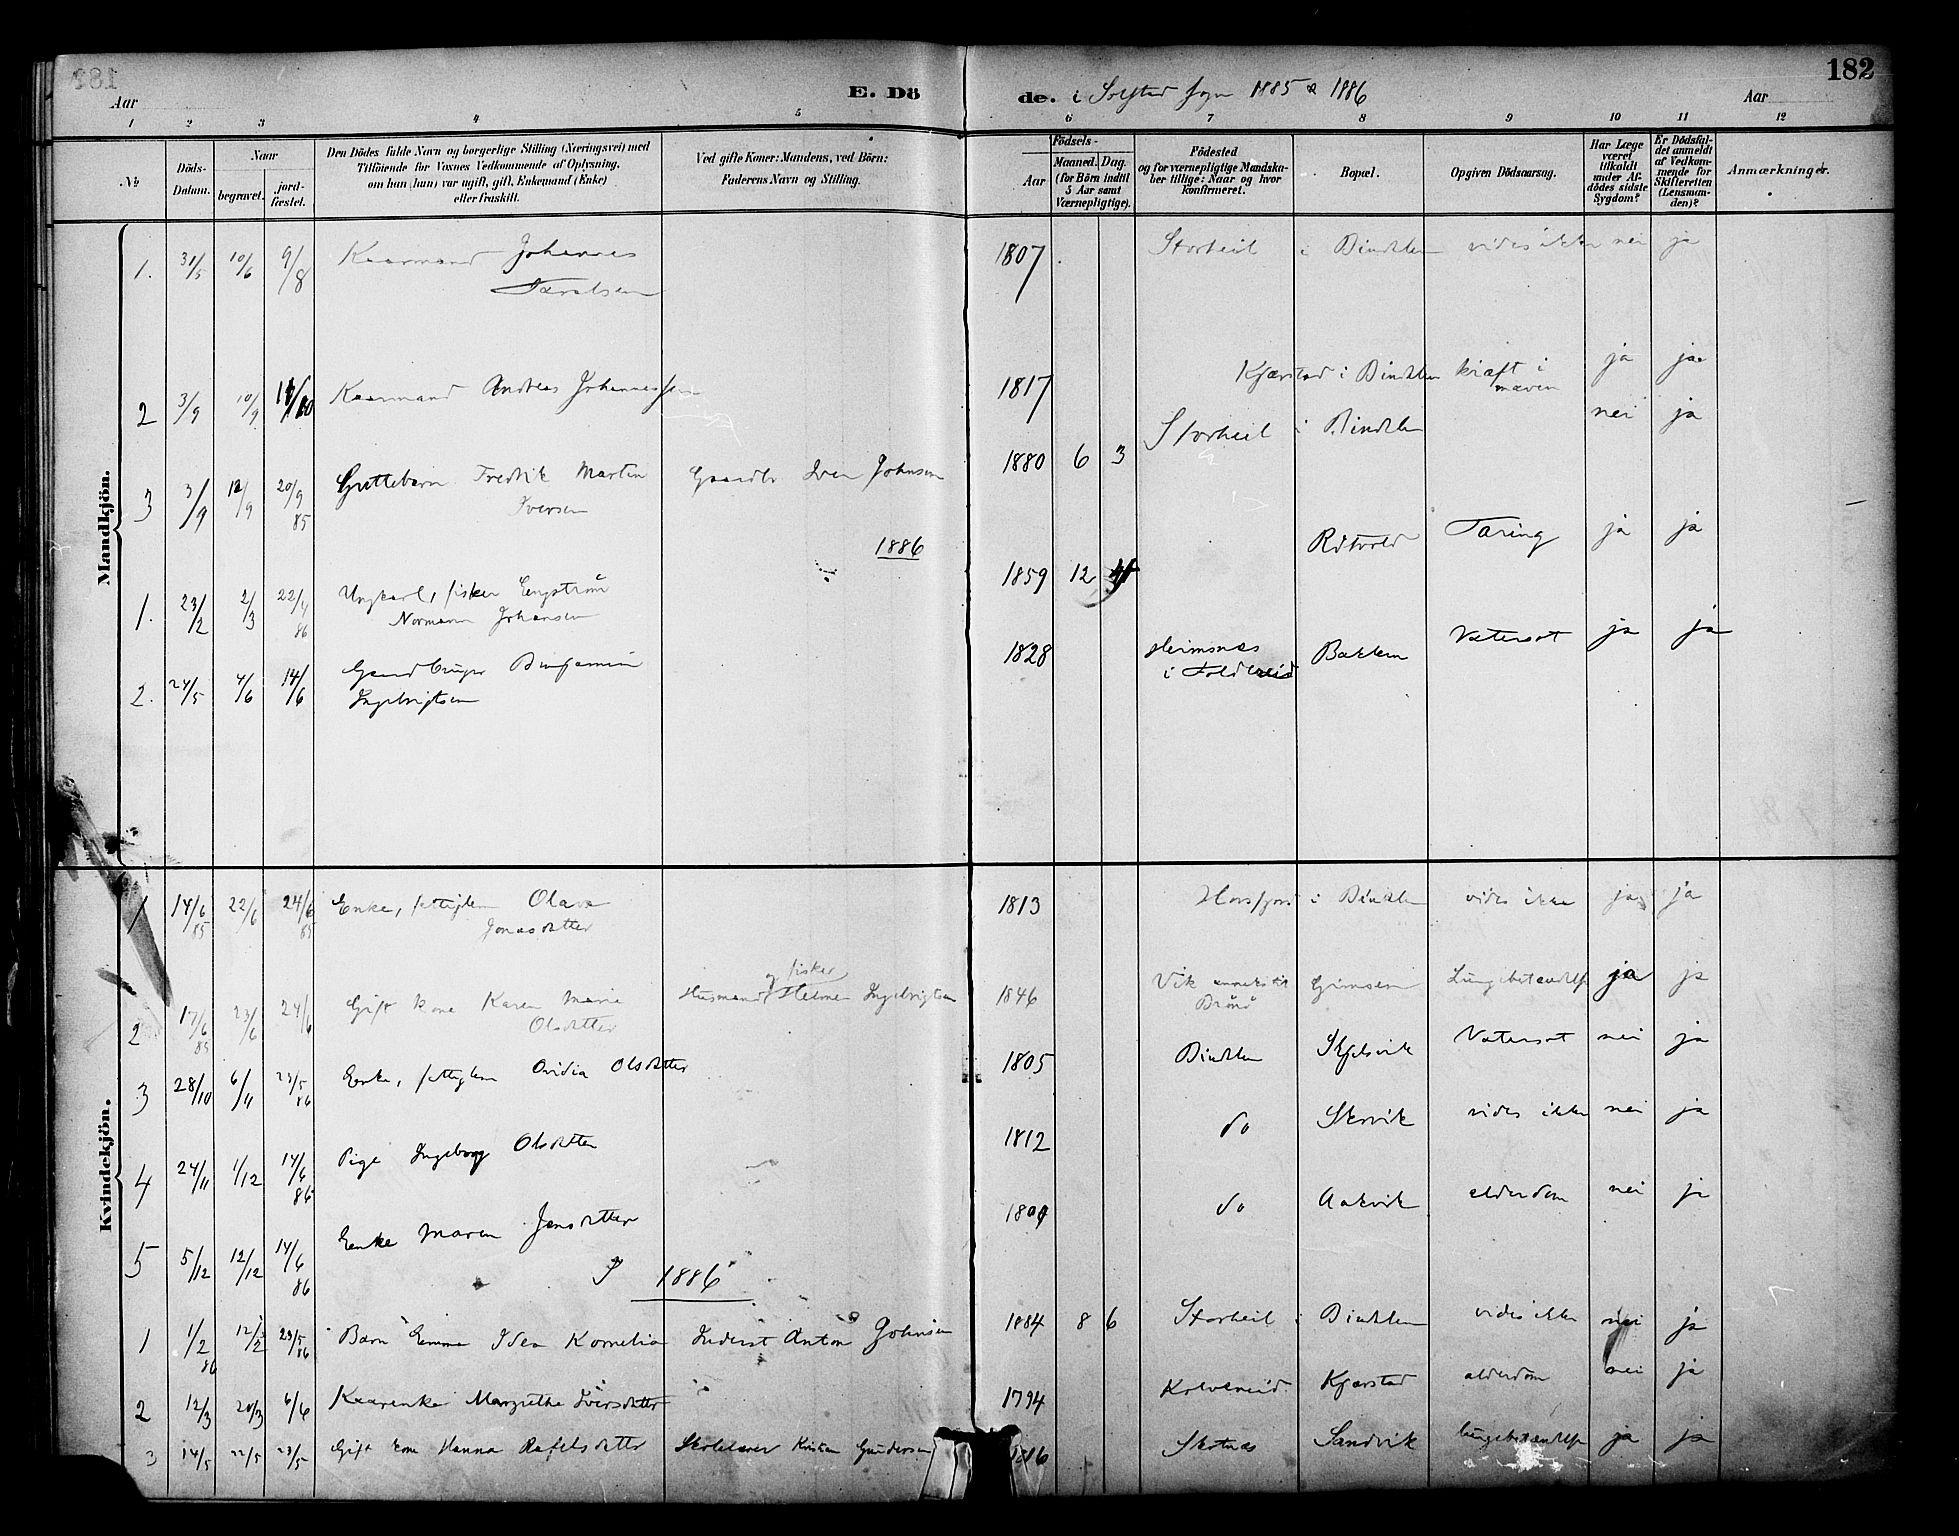 182
Aar
E. Döde. i Solstad sogn 1885 & 1886
Aar
1 2 3 4 5 6 7 8 9 10 11 12
№
Döds-Datum.
Naar
begravet.
jord-fæstet.
Den Dödes fulde Navn og borgerlige Stilling (Næringsvei) med
Tilföiende for Voxnes Vedkommende af Oplysning,
om han (hun) var ugift, gift, Enkemand (Enke)
eller fraskilt.
Ved gifte Koner: Mandens, ved Börn:
Faderens Navn og Stilling.
Födsels-
Aar
Maaned. Dag.
(for Börn indtil
5 Aar samt
Værnepligtige).
Födested
og for værnepligtige Mandska-
ber tillige: Naar og hvor
konfirmeret.
Bopæl.
Opgiven Dödsaarsag.
Har Læge
været
tilkaldt
under Af-
dödes sidste
Sygdom?
Er Dödsfal-
det anmeldt
af Vedkom-
mende for
Skifteretten
(Lensman-
den)?
Anmærkninger.
Mandkjön.
1. 31/5 10/6 9/8 Kaarmand Johannes 1807 Storheil i Bindalen vides ikke nei ja
2 3/9 10/9 Kaarmand Andreas Johannessen 1817 Kjærstad i Bindalen kræft i maven ja ja
3 3/9 12/9 20/9 85 Guttebarn Fredrik Martin Iversen Gaardbr Iver Johnsen 1880 6 3 Storheil i Bindalen nei ja
1886
1. 23/2 2/3 22/4 86 Ungkarl, fisker Engström Normann Johansen 1859 12 Tæring ja ja
2. 24/5 4/6 14/6 Gaardbruger Benjamin Ingebrigtsen 1828 Heimsnæs i Foldereid Bakken Vatersot ja ja
Kvindekjön.
1 14/6 85 22/6 24/6 85 Enke, fattiglem Olava Jonasdatter 1813 Horsfjord i Bindalen vides ikke ja ja
2 17/6 85 23/6 24/6 Gift kone Karen Marie Olsdatter Husmand og fisker Helmer Ingebrigtsen 1846 Vik annex til Brönö Lungebetændelse ja ja
3 28/10 6/11 23/5 86 Enke, fattiglem Ovidia Olsdatter 1805 Bindalen Skjelsvik Vatersot nei ja
4 24/11 1/12 14/6 86 Pige Ingeborg Olsdatter 1812 do Skarvik vides ikke nei ja
5 5/12 12/12 14/6 86 Enke Maren Jensdatter do Aakvik alderdom nei ja
1886
1 1/2 86 12/2 23/5 86 Barn Emma Idea Kornelia Inderst Anton Johnsen 1884 8 6 Storheil i Bindalen vides ikke nei ja
2 12/3 20/3 6/6 Kaarenke Margrethe Iversdatter 1794 Kolvereid Kjærstad alderdom nei ja
3 14/5 22/5 23/5 Gift kone Hanna Rafelsdatter Skolelærer Kristian Gundersen Skotnæs Sandvik lungebetændelse ja ja